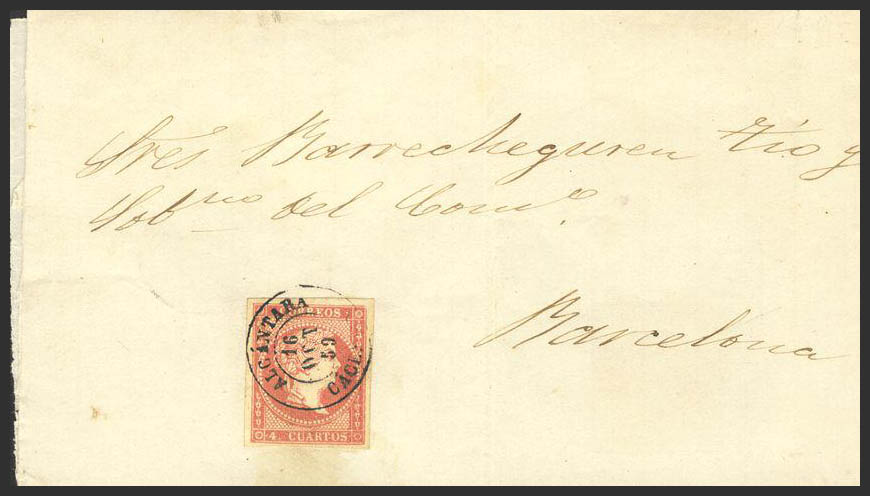 Sres Barrecheguren Tio y
Sobno del Come.
Barcelona
CORREOS
ALCANTARA
16
OCT
59
CACE.
4 CUARTOS